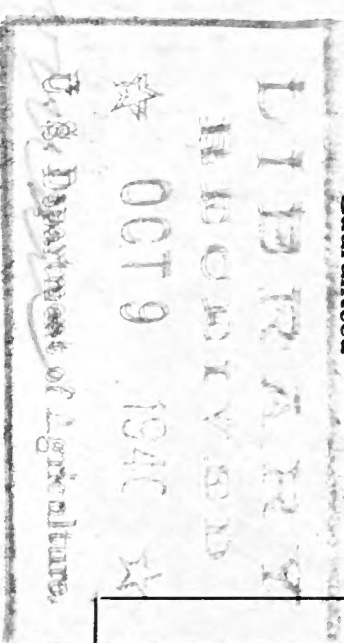 LIBRARY
RECEIVED
☆ OCT 9 1940 ☆
U. S. Department of Agriculture.